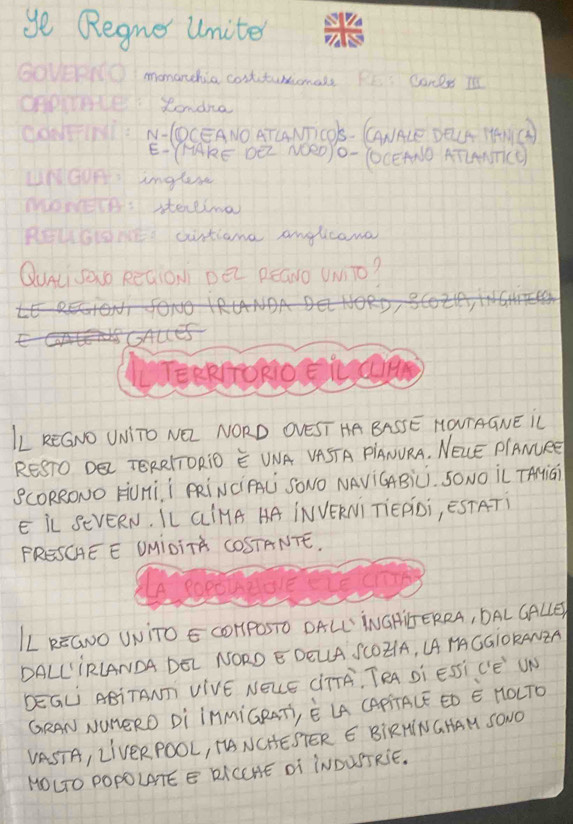 Il Regno Unito
GOVERNO: monarchia costituzionale RE: Carlo III
CAPITALE: Londra
CONFINI: N-(OCEANO ATLANTICO) S-(CANALE DELLA MANICA)
E-(MARE DEL NORD) O-(OCEANO ATLANTICO)
LINGUA: inglese
MONETA: sterlina
RELIGIONE: cristiana anglicana
QUALI SONO REGIONI DEL REGNO UNITO?
LE REGIONI SONO IRLANDA DEL NORD, SCOZIA, INGHILTERRA
E GALLES
IL TERRITORIO E IL CLIMA
IL REGNO UNITO NEL NORD OVEST HA BASSE MONTAGNE IL
RESTO DEL TERRITORIO È UNA VASTA PIANURA. NELLE PIANURE
SCORRONO FIUMI, I PRINCIPALI SONO NAVIGABILI. SONO IL TAMIGI
E IL SEVERN. IL CLIMA HA INVERNI TIEPIDI, ESTATI
FRESCHE E UMIDITÀ COSTANTE.
LA POPOLAZIONE E LE CITTÀ
IL REGNO UNITO È COMPOSTO DALL'INGHILTERRA, DAL GALLES
DALL'IRLANDA DEL NORD E DELLA SCOZIA, LA MAGGIORANZA
DEGLI ABITANTI VIVE NELLE CITTÀ. TRA DI ESSI C'E' UN
GRAN NUMERO DI IMMIGRATI, È LA CAPITALE ED È MOLTO
VASTA, LIVERPOOL, MANCHESTER E BIRMINGHAM SONO
MOLTO POPOLATE E RICCHE DI INDUSTRIE.